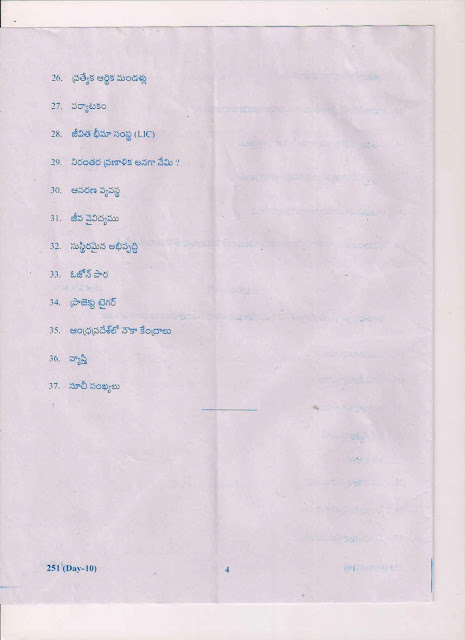 26. ప్రత్యేక ఆర్థిక మండళ్లు
27. పర్యాటకం
28. జీవిత భీమా సంస్థ (LIC)
29. నిరంతర ప్రణాళిక అనగా నేమి ?
30. ఆవరణ వ్యవస్థ
31. జీవ వైవిధ్యము
32. సుస్థిరమైన అభివృద్ధి
33. ఓజోన్ పొర
34. ప్రాజెక్టు టైగర్
35. ఆంధ్రప్రదేశ్‌లో నౌకా కేంద్రాలు
36. వ్యాప్తి
37. సూచీ సంఖ్యలు
251 (Day-10)
4